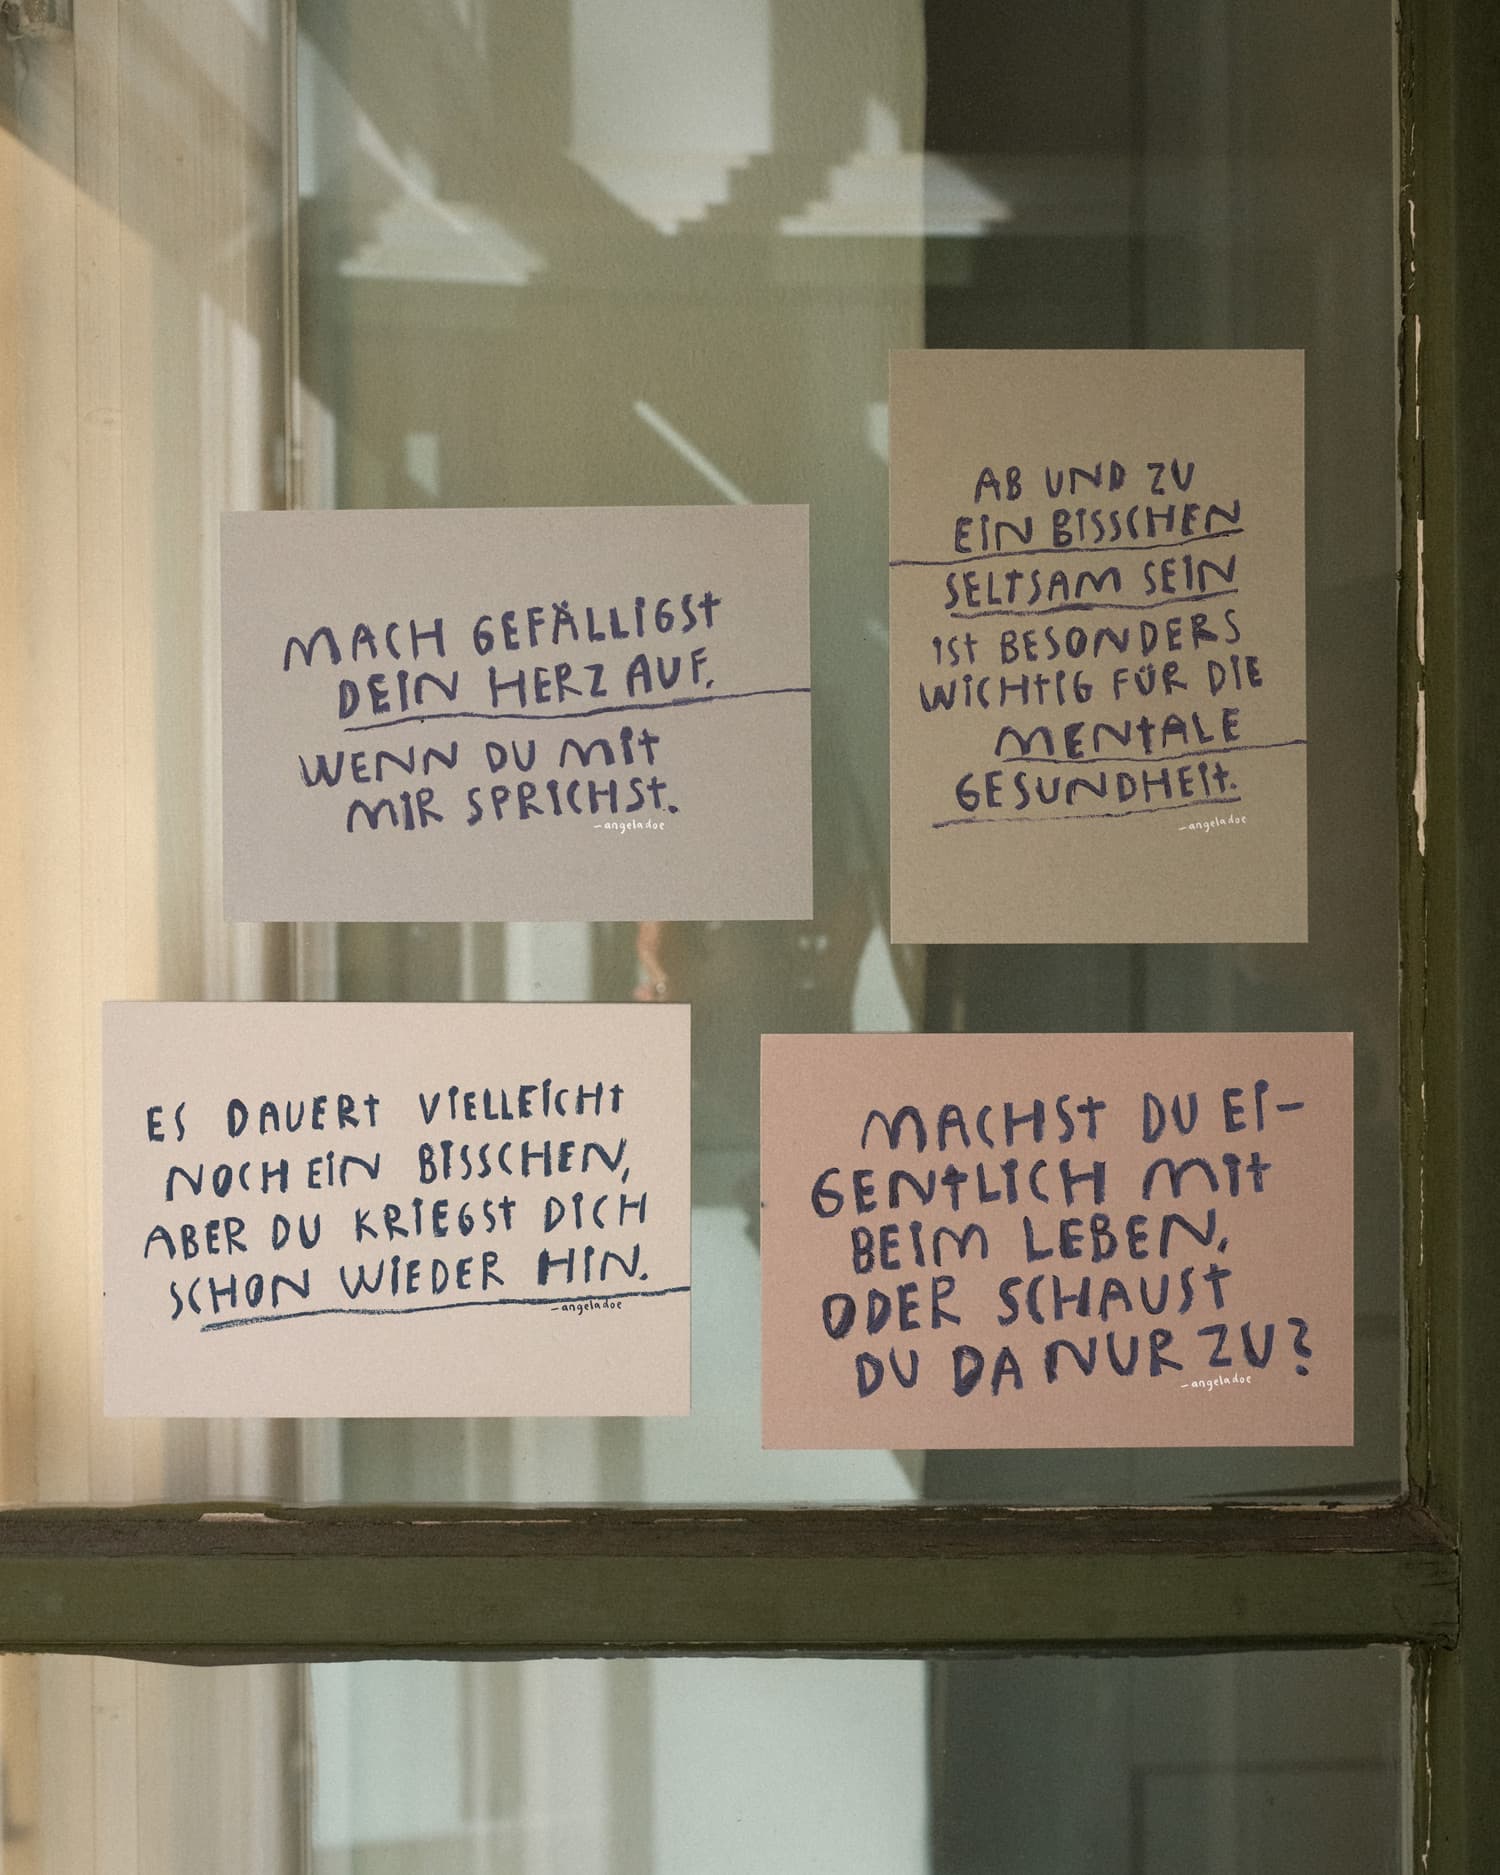 MACH GEFÄLLIGST
DEIN HERZ AUF,
WENN DU MIT
MIR SPRICHST.
–angeladoe
AB UND ZU
EIN BISSCHEN
SELTSAM SEIN
IST BESONDERS
WICHTIG FÜR DIE
MENTALE
GESUNDHEIT.
–angeladoe
ES DAUERT VIELLEICHT
NOCH EIN BISSCHEN,
ABER DU KRIEGST DICH
SCHON WIEDER HIN.
–angeladoe
MACHST DU EI–
GENTLICH MIT
BEIM LEBEN,
ODER SCHAUST
DU DA NUR ZU?
–angeladoe